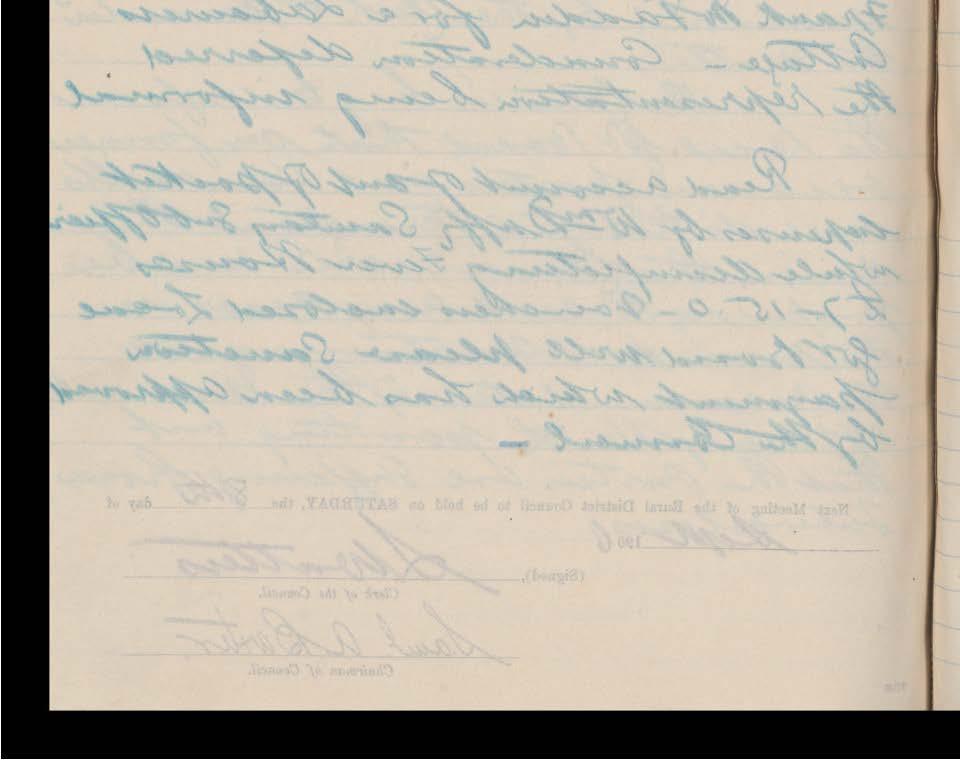 Frank McFadden for a Labourers
Cottage - Consideration deferred
the representation being informal
Read account of out of pocket
expenses by Wm Duffy Sanitary Sub Officer
while disinfecting Fever Houses
£7-15.0 - Vouchers enclosed
Local Govt Board will please Sanction
payment which has been approved
by the Council -
Next Meeting of the Rural District Council to be held on SATURDAY, the 8th day of
Sept 1906
(Signed),
Clerk of the Council.
Chairman of Council.